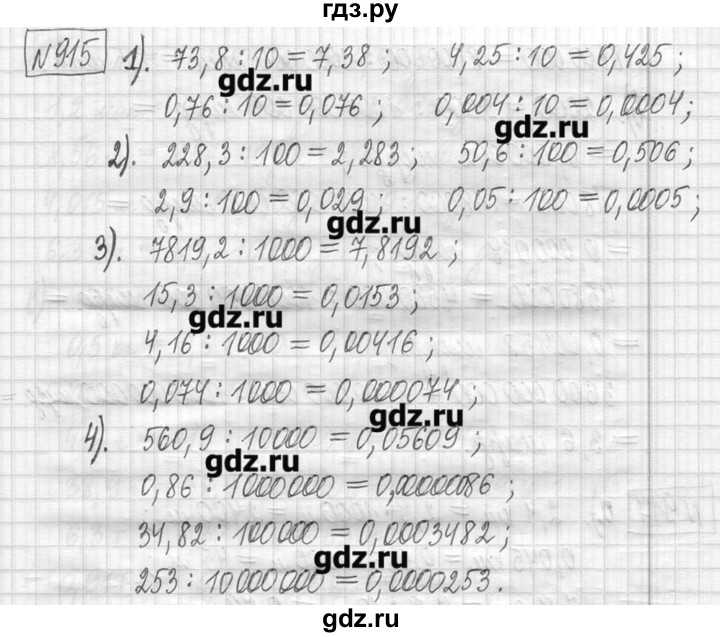 гдз.ру
№915 1). 73,8 : 10 = 7,38 ; 4,25 : 10 = 0,425 ;
gdz.ru
0,76 : 10 = 0,076 ; 0,004 : 10 = 0,0004 ;
gdz.ru
2). 228,3 : 100 = 2,283 ; 50,6 : 100 = 0,506 ;
2,9 : 100 = 0,029 ; 0,05 : 100 = 0,0005 ;
gdz.ru
3). 7819,2 : 1000 = 7,8192 ;
15,3 : 1000 = 0,0153 ;
gdz.ru
4,16 : 1000 = 0,00416 ;
0,074 : 1000 = 0,000074 ;
gdz.ru
4). 560,9 : 10000 = 0,05609 ;
gdz.ru
0,86 : 1000000 = 0,00000086 ;
34,82 : 100000 = 0,0003482 ;
gdz.ru
253 : 10000000 = 0,0000253.
gdz.ru